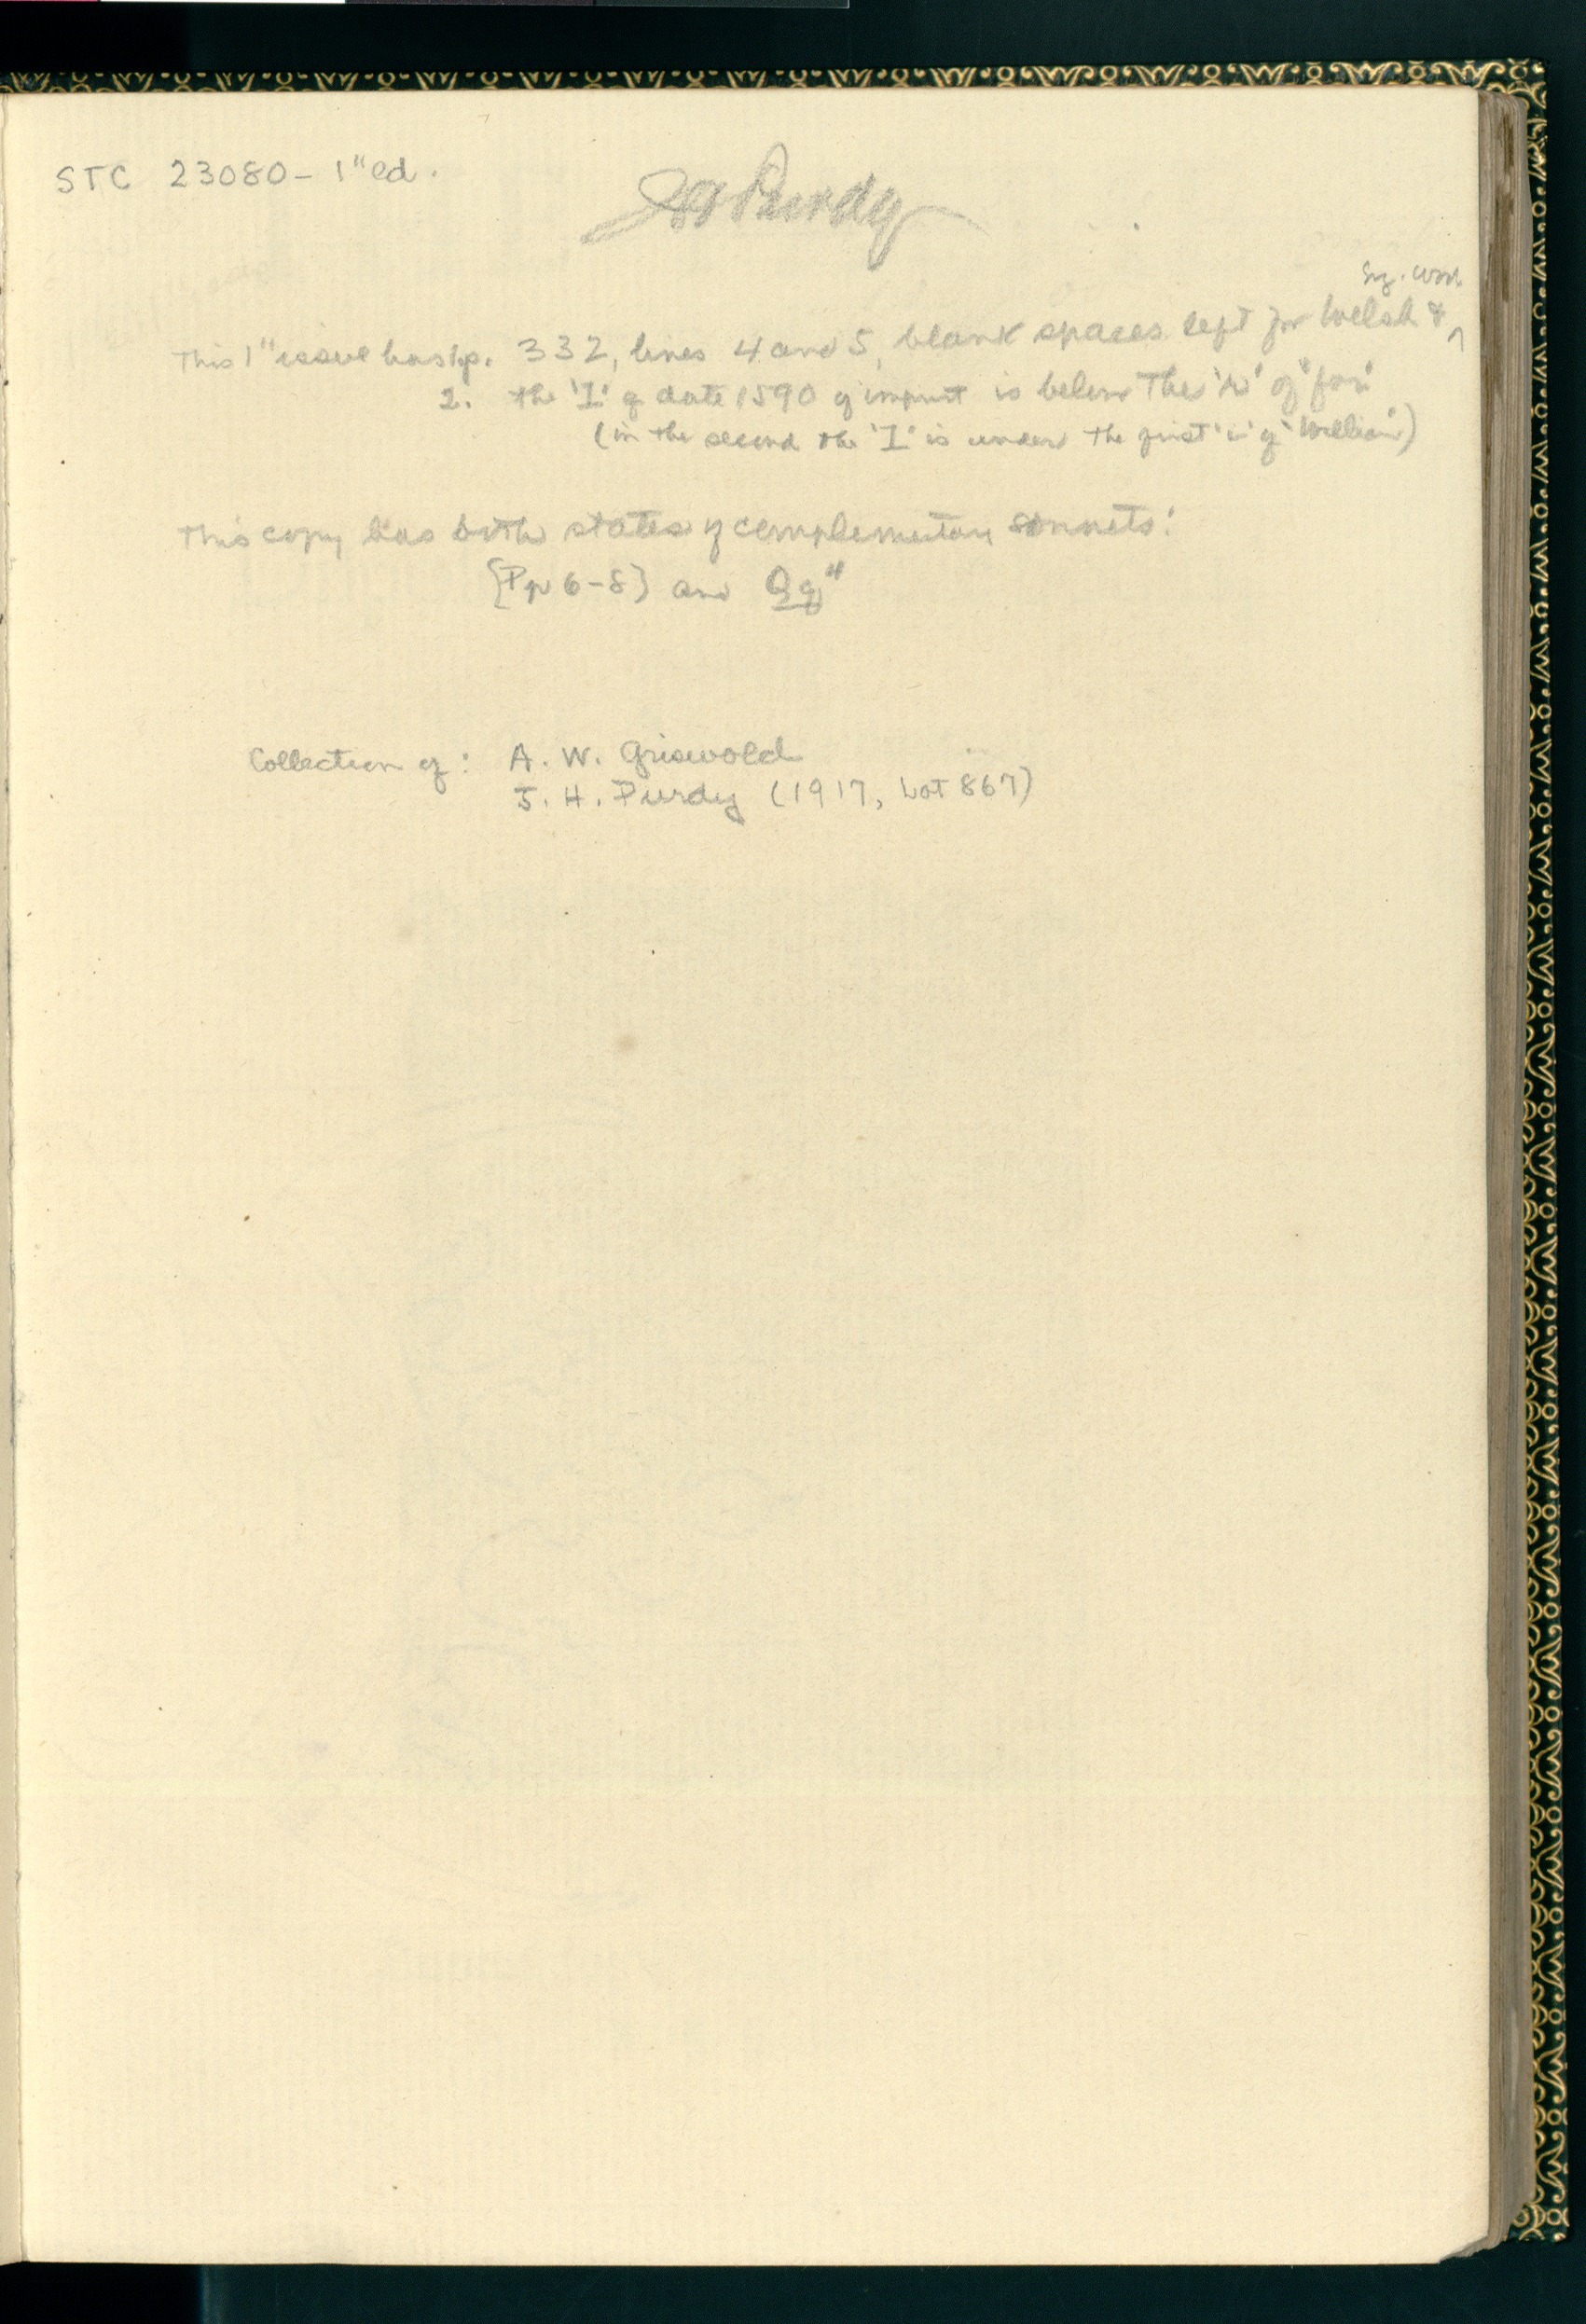 STC 23080 - 1" ed.
JH Purdy
Eng. words
This 1" issue has 1. p. 332, lines 4 and 5, blank spaces left for Welsh &
2. the 'I' of date 1590 of imprint is below the 'r' of "for"
(in the second the 'I' is under the first 'i' of "William")
This copy has both states of complementary sonnets:
{Pp 6-8} and Qq⁴
Collection of: A. W. Griswold
J. H. Purdy (1917, Lot 867)